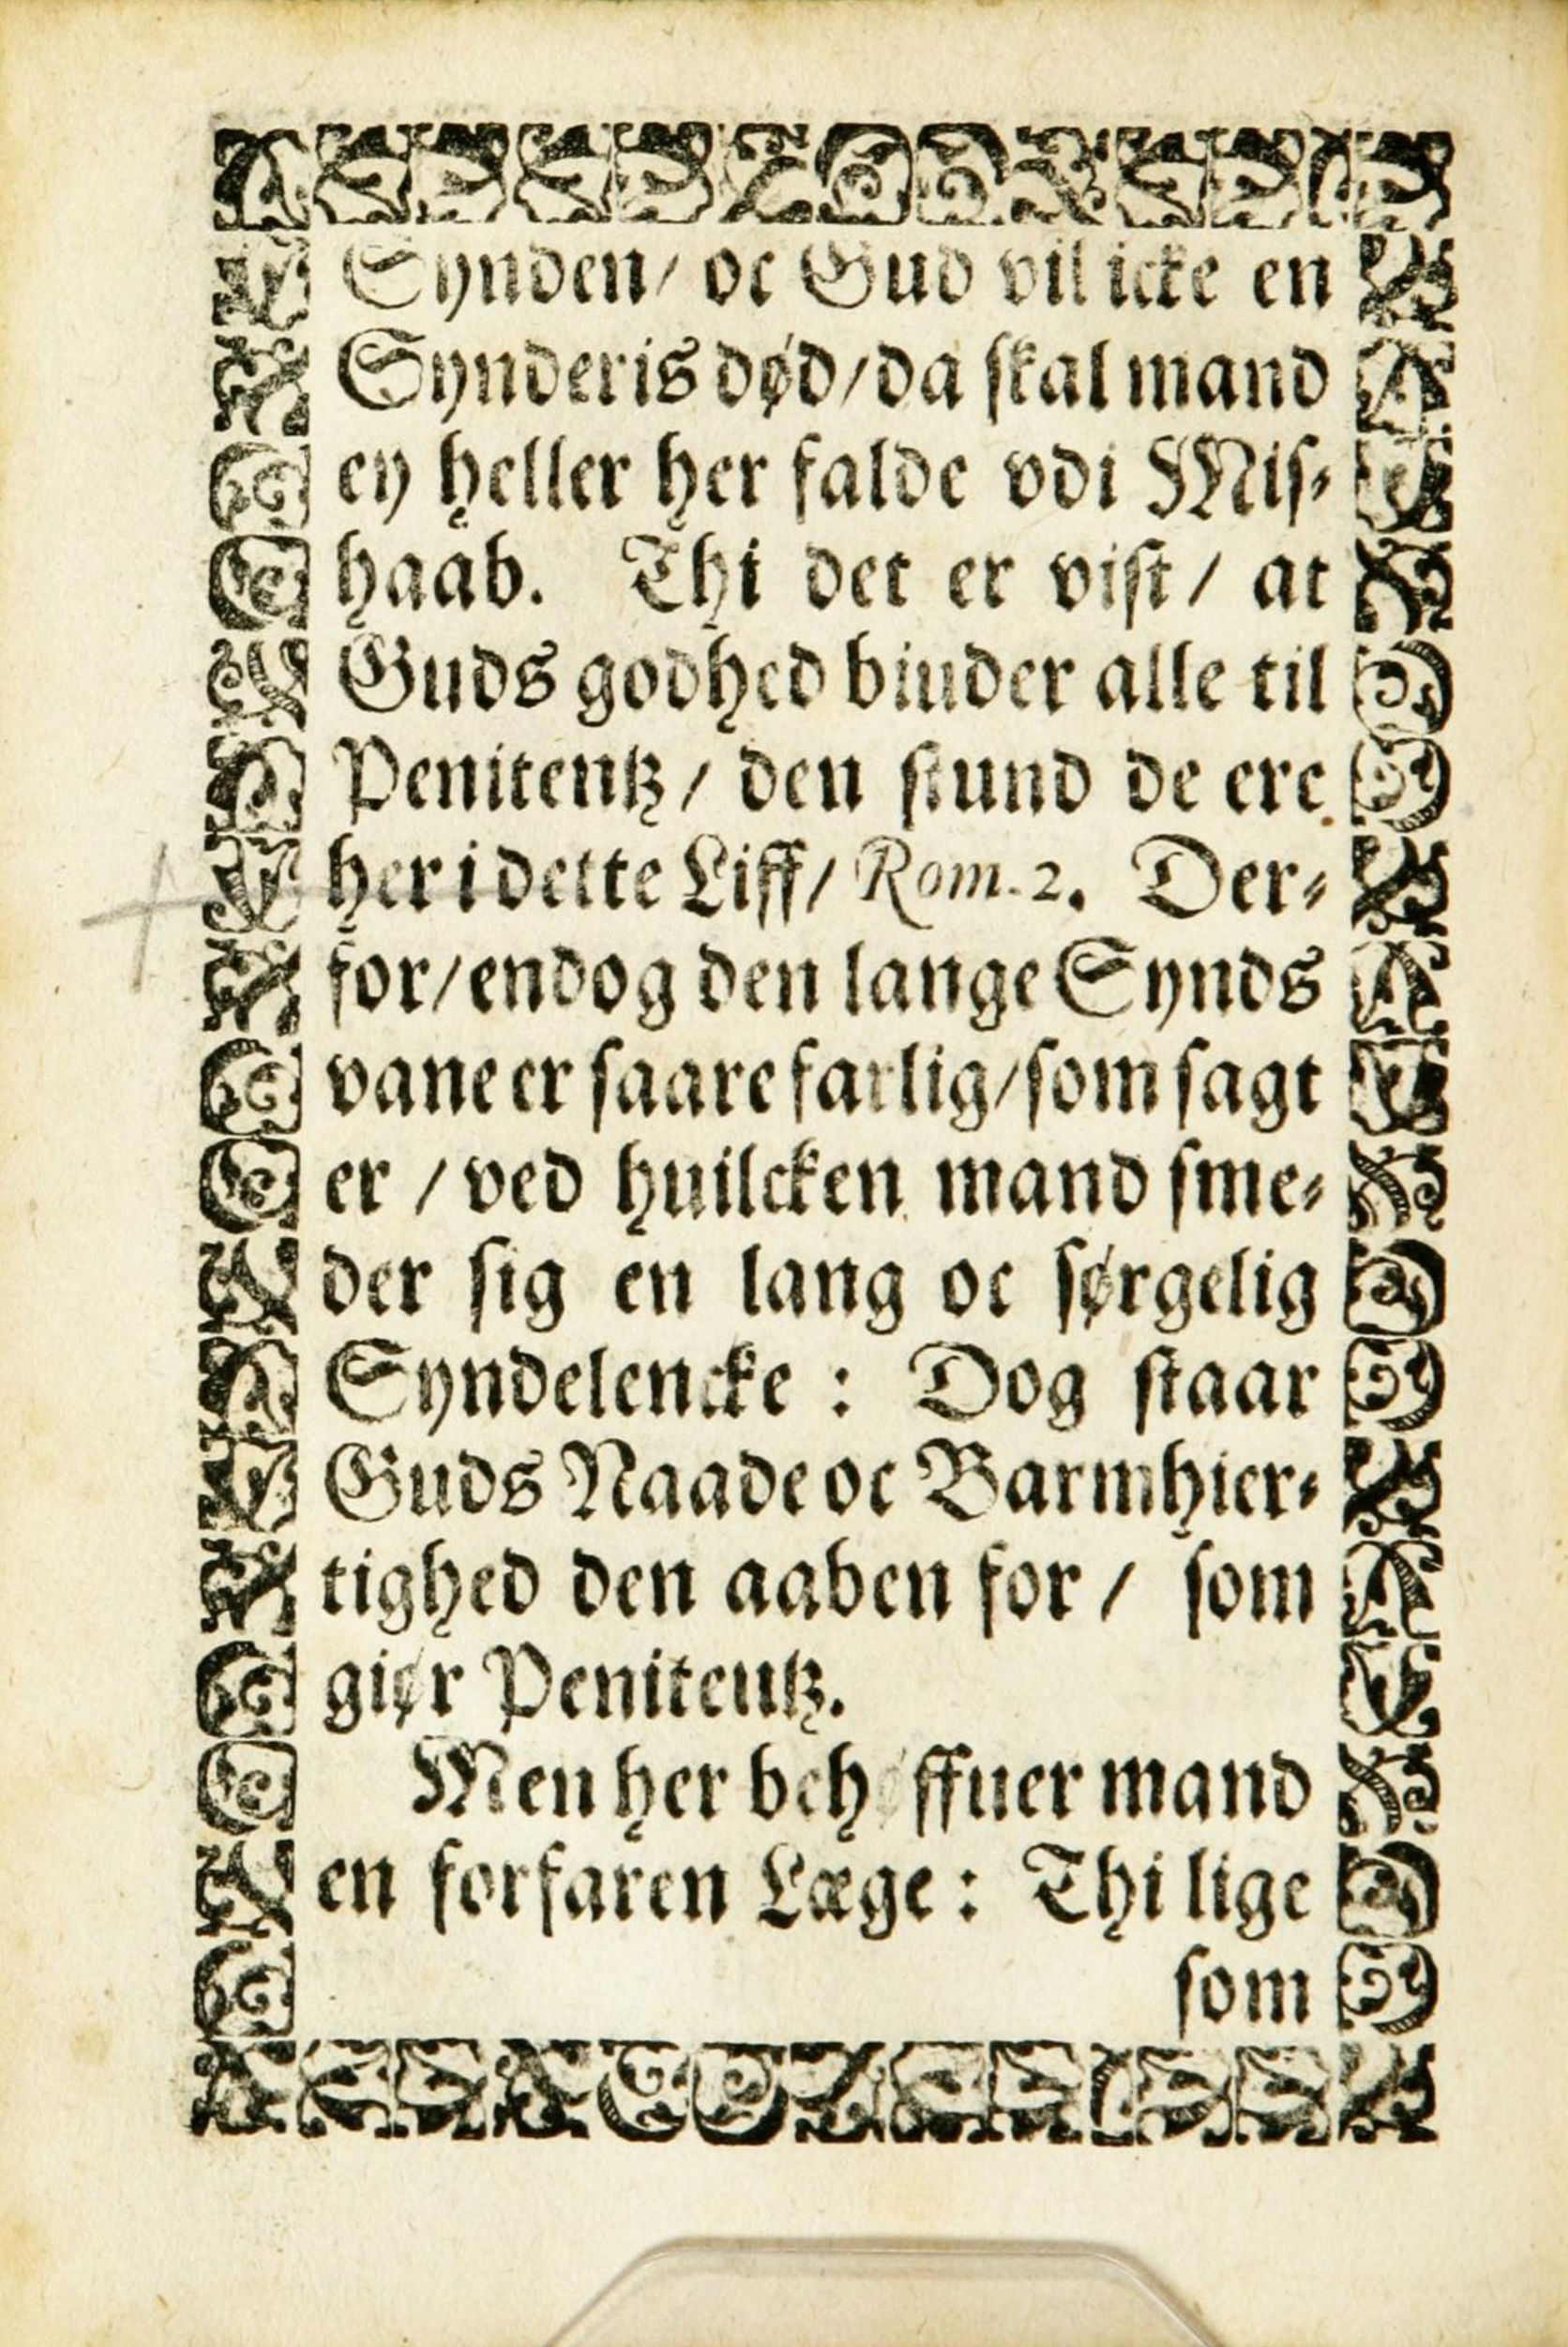 Synden/ oc Gud vil icke en
Synderis død/da skal mand
ey heller her falde vdi Mis-
haab. Thi det er vist/ at
Guds godhed biuder alle til
Penitentz/ den stund de ere
her i dette Liff/ Rom. 2. Der-
for/endog den lange Synds
vane er saare farlig/som sagt
er /ved huilcken mand sme-
der sig en lang oc sørgelig
Syndelencke : Dog staar
Guds Naade oc Barmhier-
tighed den aaben for/ som
giør Penitentz.
Men her behøffuer mand
en forfaren Læge: Thi lige
som